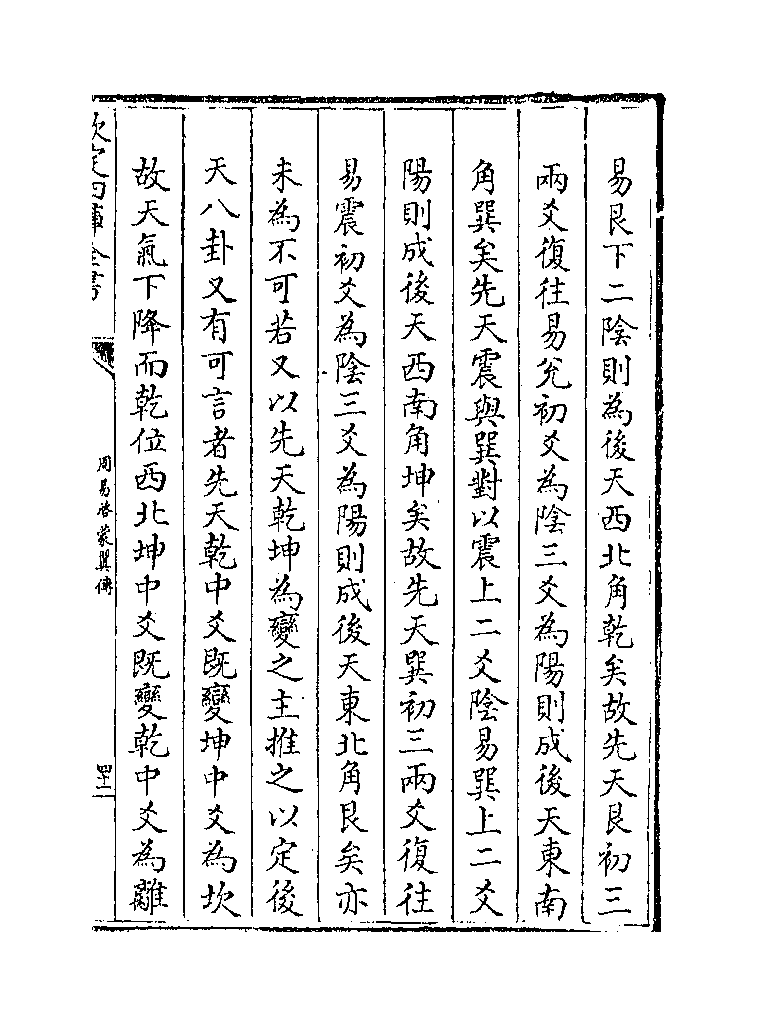 易艮下二陰則為後天西北角乾矣故先天艮初三
兩爻復往易兊初爻為陰三爻為陽則成後天東南
角巽矣先天震與巽對以震上二爻陰易巽上二爻
陽則成後天西南角坤矣故先天巽初三兩爻復往
易震初爻為陰三爻為陽則成後天東北角艮矣亦
未為不可若又以先天乾坤為變之主推之以定後
天八卦又有可言者先天乾中爻既變坤中爻為坎
故天氣下降而乾位西北坤中爻既變乾中爻為離
欽定四庫全書
周易啓蒙翼傳
四十二